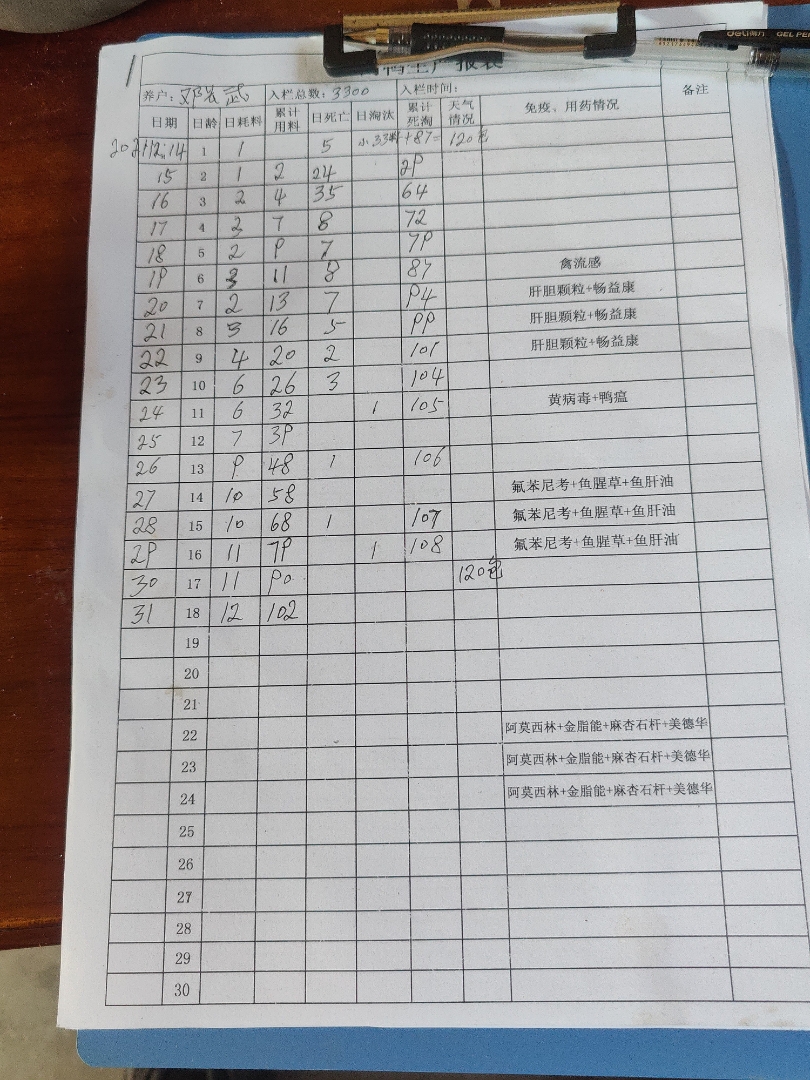 deli GEL PEN
鸭生产报表
养户：邓宏武 入栏总数：3300 入栏时间：
日期 日龄 日耗料 累计用料 日死亡 日淘汰 累计死淘 天气情况 免疫、用药情况 备注
12.14 1 1 5 小33料+87= 120包
15 2 1 2 24 29
16 3 2 4 35 64
17 4 3 7 8 72
18 5 2 9 7 79
19 6 3 11 8 87 禽流感
20 7 2 13 7 94 肝胆颗粒+畅益康
21 8 3 16 5 99 肝胆颗粒+畅益康
22 9 4 20 2 101 肝胆颗粒+畅益康
23 10 6 26 3 104
24 11 6 32 1 105 黄病毒+鸭瘟
25 12 7 39
26 13 9 48 1 106
27 14 10 58 氟苯尼考+鱼腥草+鱼肝油
28 15 10 68 1 107 氟苯尼考+鱼腥草+鱼肝油
29 16 11 79 1 108 氟苯尼考+鱼腥草+鱼肝油
30 17 11 90 120包
31 18 12 102
19
20
21
22 阿莫西林+金脂能+麻杏石杆+美德华
23 阿莫西林+金脂能+麻杏石杆+美德华
24 阿莫西林+金脂能+麻杏石杆+美德华
25
26
27
28
29
30